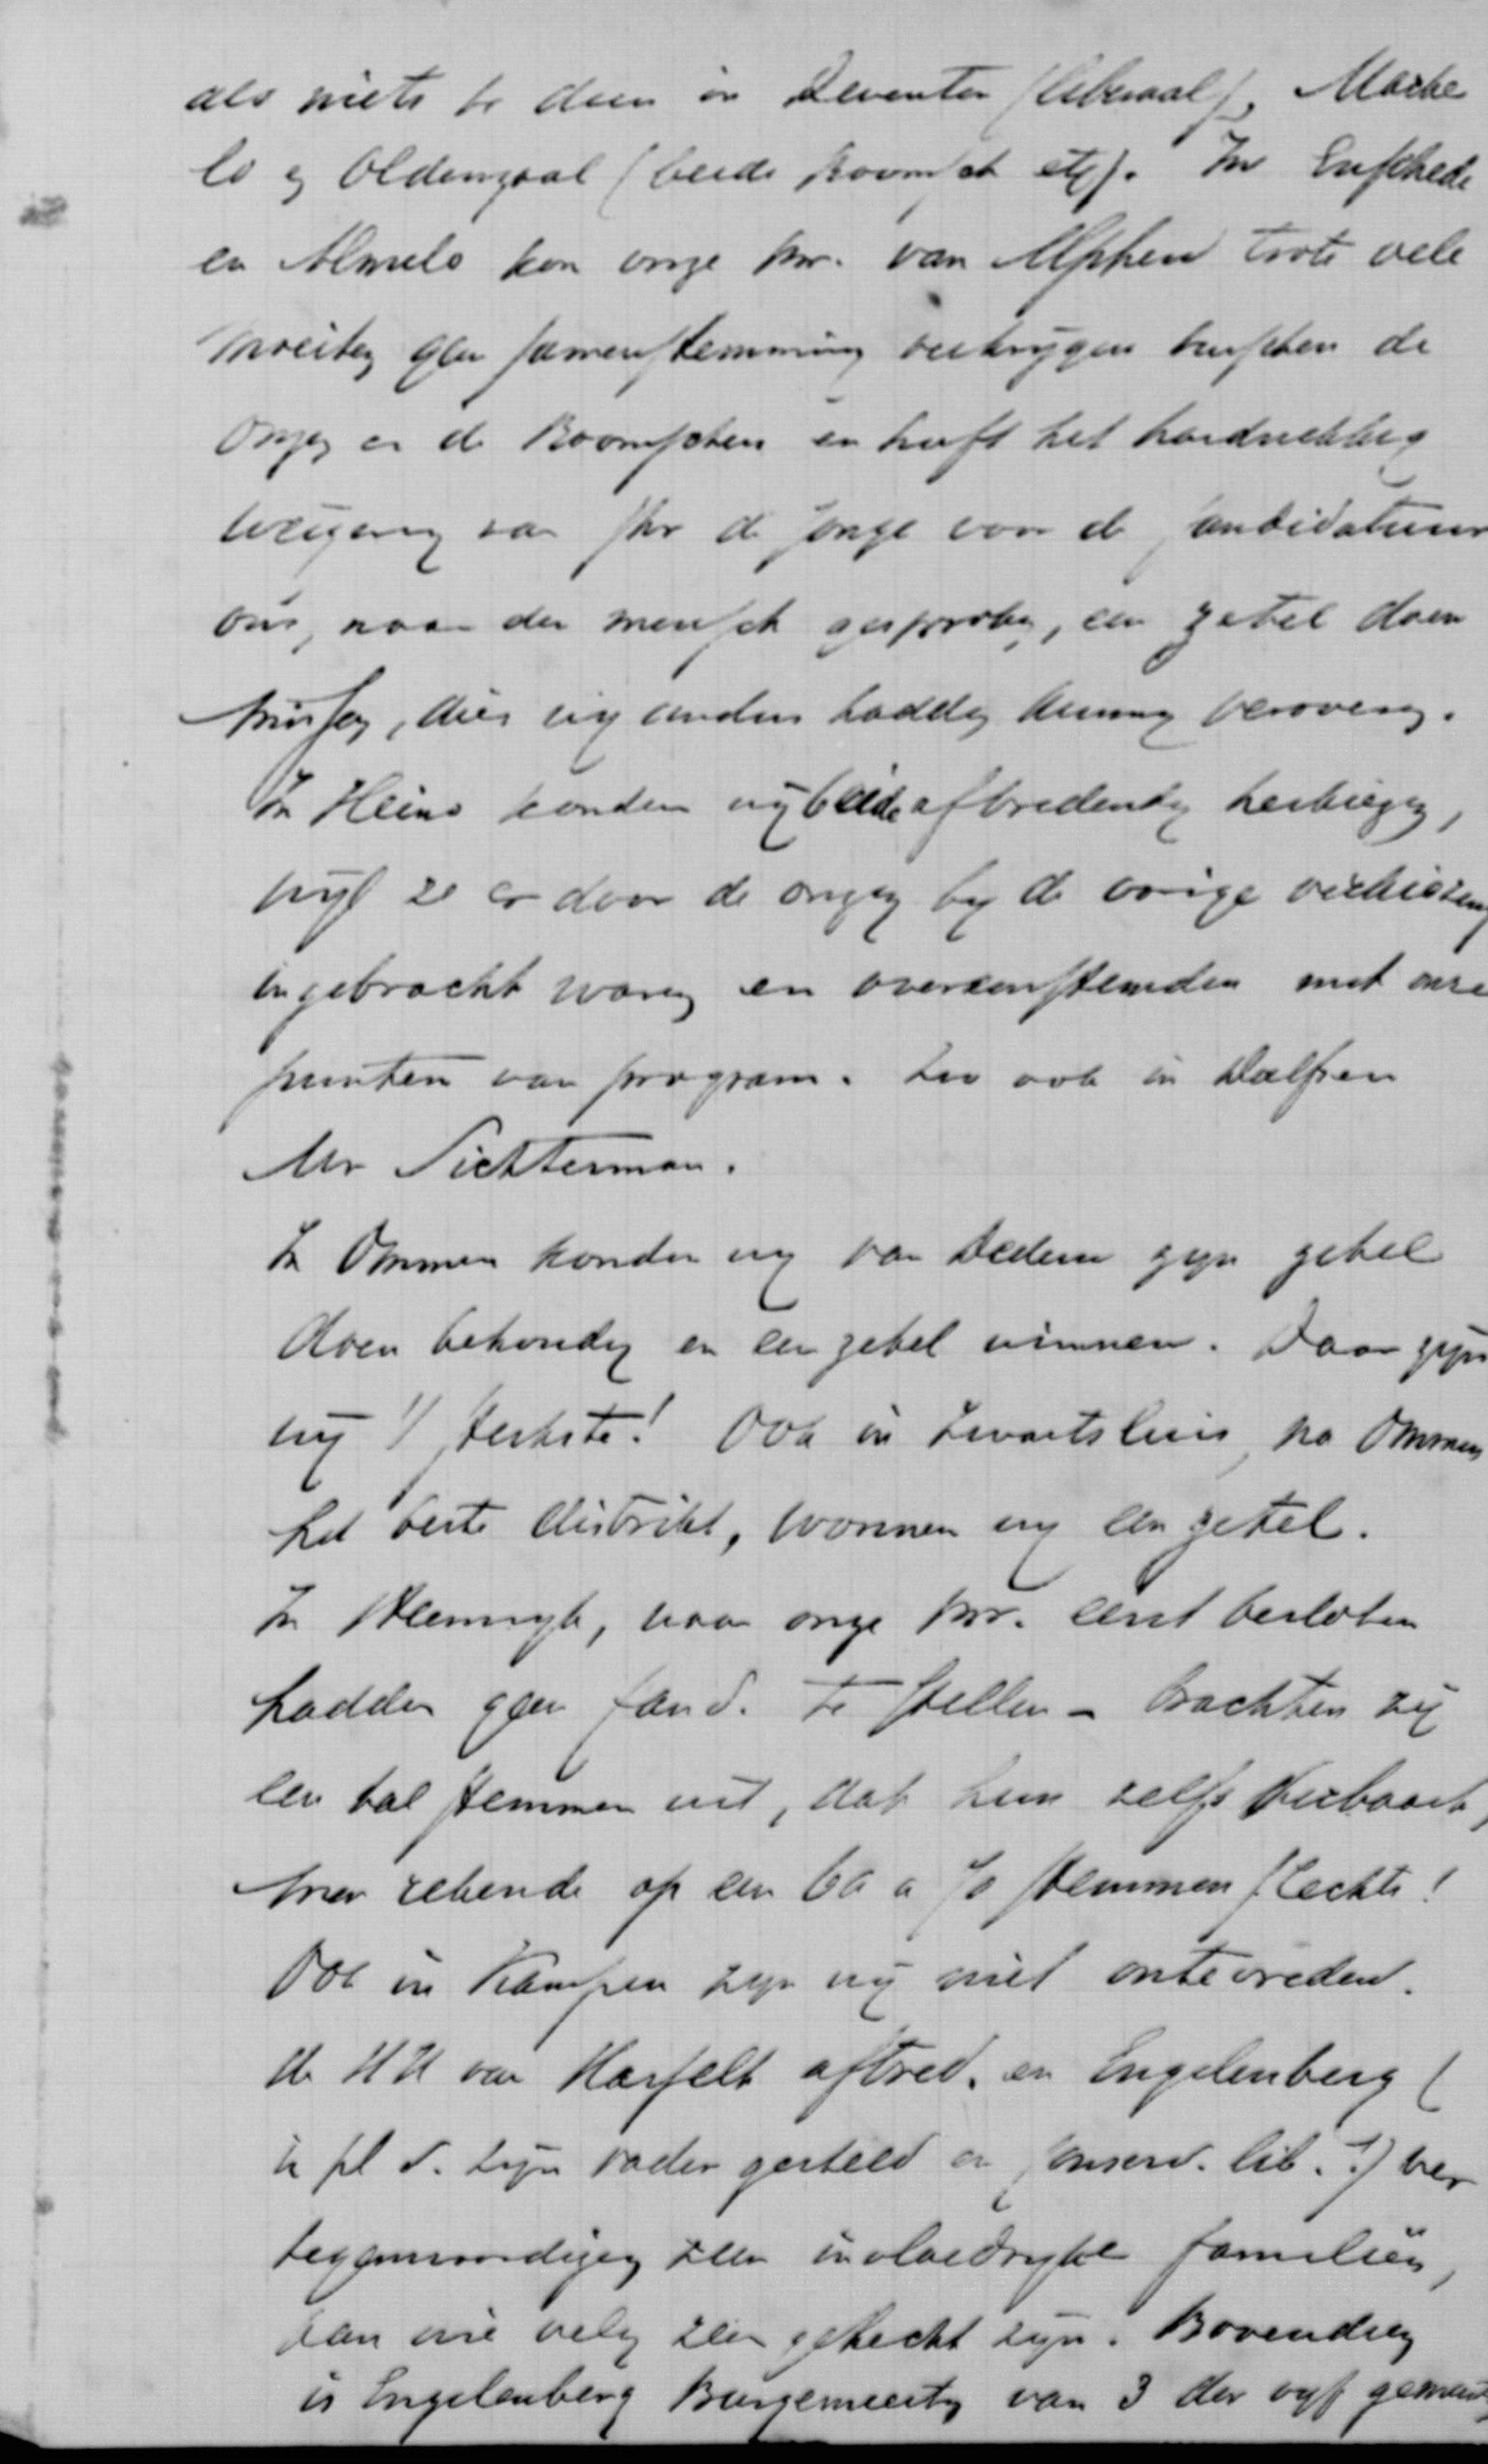 als niets te doen in Deventer (liberaal), Marke
lo en Oldenzaal (beide Roomsch etc). In Enschede
en Almelo kon onze mr. van Alphen trots vele
moeiten geen samenstemming verkrijgen tusschen de
onzen en de Roomschen en heeft het hardnekkig
weigeren van Jhr de Jonge voor de candidatuur
ons, naar den mensch gesproken, een zetel doen
missen, dien wij anders hadden kunnen veroveren.
In Heino konden wij beide aftredenden herkiezen,
wijl ze er door de onzen bij de vorige verkiezing
ingebracht waren en overeenstemden met onze
punten van program. Zoo ook in Dalfsen
Mr Sichterman.
In Ommen konden wij van Dedem zijn zetel
doen behouden en een zetel winnen. Daar zijn
wij 't sterkste! Ook in Zwartsluis, na Ommen
het beste district, wonnen wij een zetel.
In Steenwijk, waar onze mr. eerst besloten
hadden geen cand. te stellen – brachten zij
een tal stemmen uit, dat hen zelfs verbaast,
men rekende op een 60 a 70 stemmen slechts!
Ook in Kampen zijn wij niet ontevreden.
De HH van Hasselt aftred. en Engelenberg (
in pl v. zijn vader gesteld en conserv. lib. ?) ver
tegenwoordigen zeer invloedrijke familiën,
aan wie velen zeer gehecht zijn. Bovendien
is Engelenberg Burgemeester van 3 der vijf gemeent